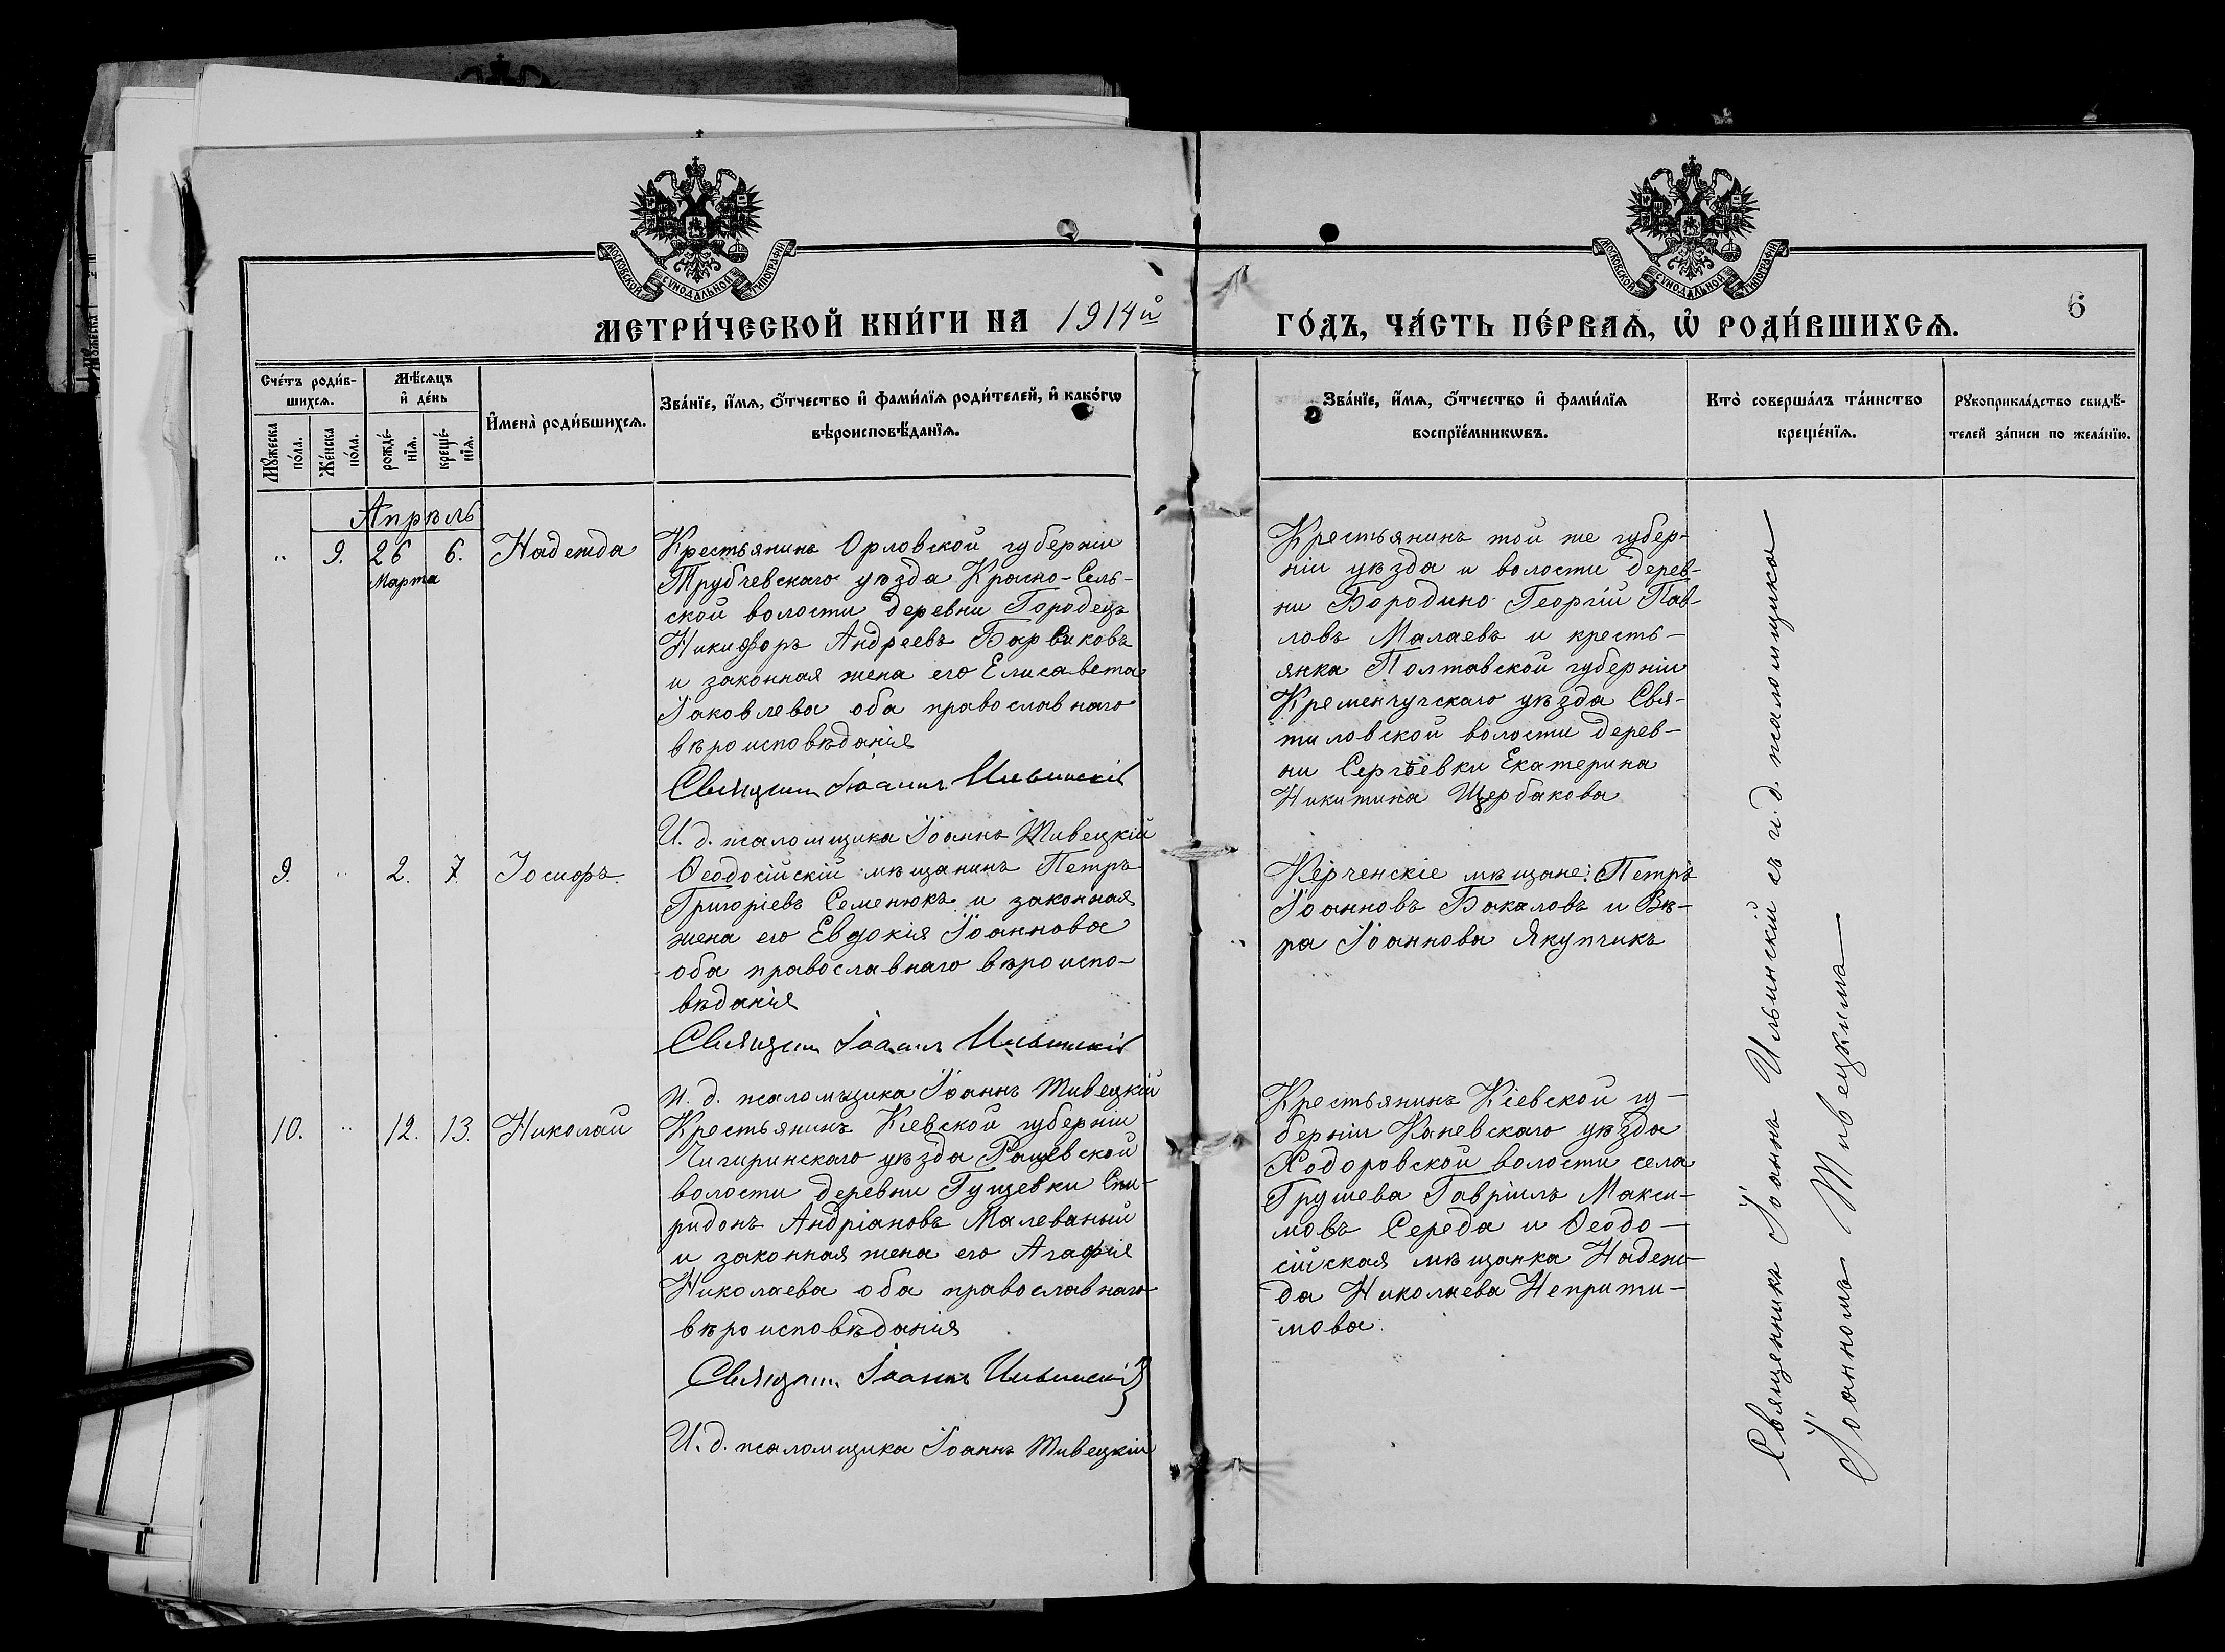 МОСКОВСКОЙ СѴНОДАЛЬНОЙ ТИПОГРАФІИ
МОСКОВСКОЙ СѴНОДАЛЬНОЙ ТИПОГРАФІИ
МЕТРИ́ЧЕСКОЙ КНИ́ГИ НА 1914й ГО́ДЪ, ЧА́СТЬ ПЕ́РВАѦ, Ѡ҆ РОДИ́ВШИХСѦ.
6
Сче́тъ роди́в-
шихсѧ.
Мꙋ́жеска
по́ла.
Же́нска
по́ла.
Мѣ́сѧцъ
и҆ де́нь
рожде́-
нїѧ.
креще́-
нїѧ.
И҆мена̀ роди́вшихсѧ.
Зва́нїе, и҆́мѧ, ѻ҆́тчество и҆ фами́лїѧ роди́телей, и҆ како́гѡ
вѣроисповѣ́данїѧ.
Зва́нїе, и҆́мѧ, ѻ҆́тчество и҆ фами́лїѧ
воспрїе́мникѡвъ.
Кто̀ соверша́лъ та́инство
креще́нїѧ.
Рꙋкоприкла́дство свидѣ́-
телей за́писи по жела́нїю.
Апрѣль
" 9. 26 6. Надежда
Марта
Крестьянинъ Орловской губерніи
Трубчевскаго уѣзда Красно-Сель-
ской волости деревни Городецъ
Никифоръ Андреевъ Барвиковъ
и законная жена его Елисавета
Іаковлева оба православнаго
вѣроисповѣданія
Священ. Іоаннъ Ильинскій
И. д. псаломщика Іоаннъ Живецкій
Крестьянинъ той же губер-
ніи уѣзда и волости дерев-
ни Бородино Георгій Пав-
ловъ Малаевъ и кресть-
янка Полтавской губерніи
Кременчугскаго уѣзда Свя-
тиловской волости дерев-
ни Сергѣевки Екатерина
Никитина Щербакова
9. " 2. 7. Іосифъ.
Ѳеодосійскій мѣщанинъ Петръ
Григоріевъ Семенюкъ и законная
жена его Евдокія Іоаннова
оба православнаго вѣроиспо-
вѣданія
Священ. Іоаннъ Ильинскій
И. д. псаломщика Іоаннъ Живецкій
Керченскіе мѣщане: Петръ
Іоанновъ Бакаловъ и Вѣ-
ра Іоаннова Якупчикъ
10. " 12. 13. Николай
Крестьянинъ Кіевской губерніи
Чигиринскаго уѣзда
волости деревни Гущевки Спи-
ридонъ Андріановъ Малеваный
и законная жена его Агафія
Николаева оба православнаго
вѣроисповѣданія
Священ. Іоаннъ Ильинскій
И. д. псаломщика Іоаннъ Живецкій
Крестьянинъ Кіевской гу-
берніи Каневскаго уѣзда
Ходоровской волости села
Грушева Гавріилъ Макси-
мовъ Середа и Ѳеодо-
сійская мѣщанка Надеж-
да Николаева Неприти-
мова.
Священникъ Іоаннъ Ильинскій съ и. д. псаломщика
Іоанномъ Живецкимъ